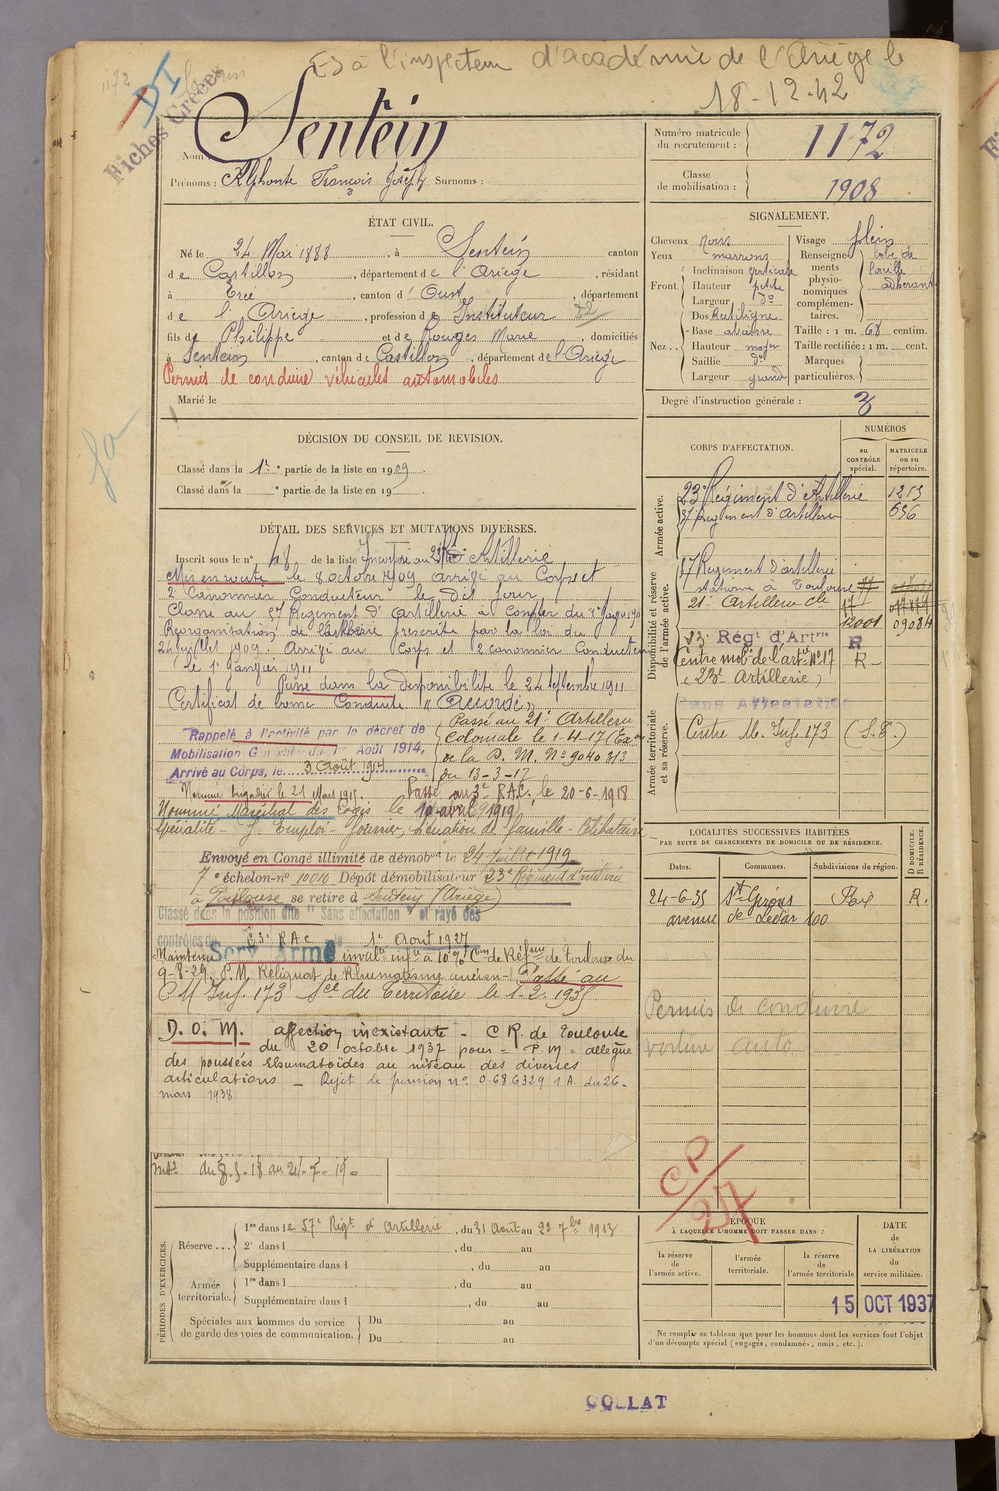 ES à l'inspecteur d'académie de l'Ariège le
18-12-42
1172
DI
Fiches Créées
Nom : Sentein
Prénoms : Alphonse François Joseph Surnoms :
Numéro matricule du recrutement : 1172
Classe de mobilisation : 1908
ÉTAT CIVIL.
Né le 24 Mai 1888, à Sentein canton
de Castillon, département de l'Ariège, résidant
à Ercé, canton d'Oust, département
de l'Ariège, profession de Instituteur
fils de Philippe et de Rouges Marie domiciliés
à Sentein, canton de Castillon, département de l'Ariège
Permis de conduire véhicules automobiles
Marié le
SIGNALEMENT.
Cheveux noirs
Yeux marrons
Front Inclinaison verticale
Hauteur petite
Largeur do
Nez Dos Rectiligne
Base abaissée
Hauteur moyen
Saillie do
Largeur grand
Visage plein
Renseignements physionomiques complémentaires. lobe de l'oreille adhérent
Taille : 1 m. 68 centim.
Taille rectifiée : 1 m. cent.
Marques particulières.
Degré d'instruction générale : 3
DÉCISION DU CONSEIL DE REVISION.
Classé dans la 1re partie de la liste en 1909.
Classé dans la e partie de la liste en 19
DÉTAIL DES SERVICES ET MUTATIONS DIVERSES.
Inscrit sous le n° 48 de la liste Incorporé au 23e Rt Artillerie
Mis en route le 8 octobre 1909 arrivé au Corps et
2e Canonnier Conducteur le dit jour
Classé au 57 Régiment d'Artillerie à Compter du 1er Janvier 1910
Réorganisation de l'artillerie prescrite par la loi du
24 juillet 1909. Arrivé au Corps et 2e canonnier Conducteur
le 1er Janvier 1911
Passé dans la disponibilité le 24 septembre 1911
Certificat de bonne Conduite "Accordé"
Rappelé à l'activité par le décret de
Mobilisation Générale du 1er Août 1914,
Arrivé au Corps, le 3 Août 1914
Passé au 21e Artillerie
Coloniale le 1-4-17 (Exon
de la D. M. No 9040 3/3
du 13-3-17
Nommé brigadier le 21 Mars 1915. Passé au 3e R.A.C. le 20-6-1918
Nommé Maréchal des Logis le 10 avril 1919
Spécialité - Emploi - Fourrier, Situation de famille - Célibataire
Envoyé en Congé illimité de démobon le 24 Juillet 1919
7e échelon-n° 10010 Dépôt démobilisateur 23e Régiment d'artillerie
à Toulouse se retire à Sentein (Ariège)
Classé dans la position dite "Sans affectation" et rayé des
contrôles du 23e R.A.C. le 1er Aout 1927
Maintenu Serv. Armé invalté infre à 10 % Con de Réfme de Toulouse du
9-8-29. P.M. Reliquat de Rhumatisme ancien - Passé au
CM Inf. 173 Sce du Territoire le 1.2.1935
D.O.M. affection inexistante - C R. de Toulouse
du 20 octobre 1937 pour = P.M = allègue
des poussées Rhumatoïdes au niveau des diverses
articulations - Rejet de pension no 0.68.6329 1 A. du 26-
mars 1938
CORPS D'AFFECTATION.
NUMÉROS
au CONTRÔLE spécial.
MATRICULE ou au répertoire.
Armée active.
23e Régiment d'Artillerie 1213
57 Régiment d'Artillerie 656
Disponibilité et réserve de l'armée active.
57 Régiment d'artillerie
stationé à Toulouse
21e Artillerie Cle
12001 09084
23e Régt d'Artrie R
Centre mobe de l'artie No 17 R
(23e Artillerie)
Armée territoriale et sa réserve.
Sans Affectation
Centre M. Inf. 173 (S.T.)
LOCALITÉS SUCCESSIVES HABITÉES
PAR SUITE DE CHANGEMENTS DE DOMICILE OU DE RÉSIDENCE.
Dates. Communes. Subdivisions de région. D. DOMICILE. R. RÉSIDENCE.
24-6-35 St Girons Foix R.
avenue de Ledar 100
Permis de conduire
voiture auto
CP
27
PÉRIODES D'EXERCICES.
Réserve... 1re dans le 57e Régt d'Artillerie, du 31 Août au 22 7bre 1913
2e dans l , du au
Supplémentaire dans l , du au
Armée territoriale. 1re dans l , du au
Supplémentaire dans l , du au
Spéciales aux hommes du service de garde des voies de communication. Du au
Du au
ÉPOQUE
À LAQUELLE L'HOMME DOIT PASSER DANS :
la réserve de l'armée active.
l'armée territoriale.
la réserve de l'armée territoriale
DATE de LA LIBÉRATION du service militaire.
15 OCT 1937
Ne remplir ce tableau que pour les hommes dont les services font l'objet
d'un décompte spécial (engagés, condamnés, omis, etc.).
COLLAT